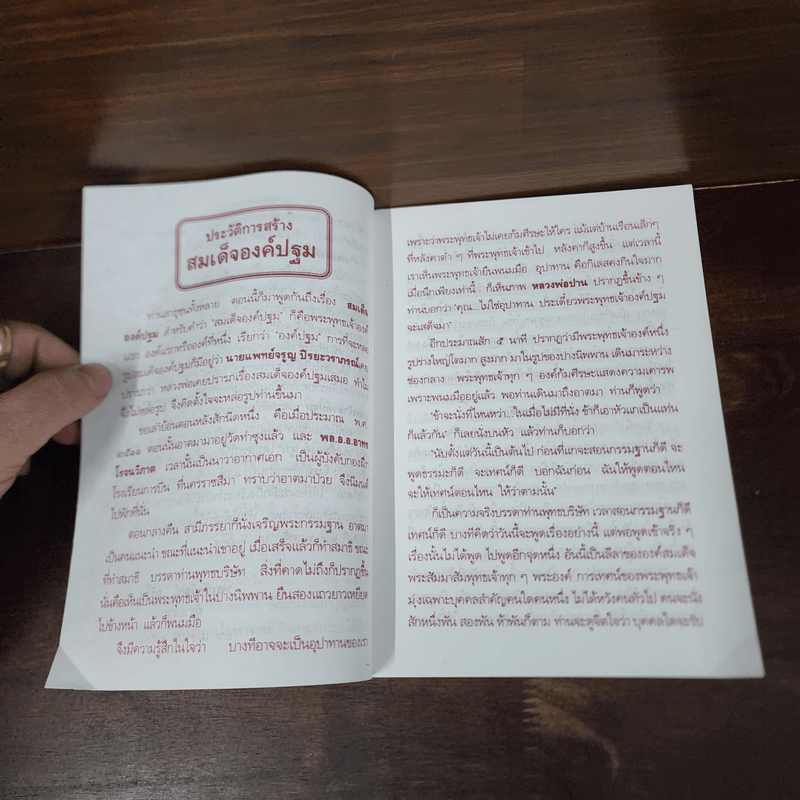 ประวัติการสร้าง
สมเด็จองค์ปฐม
ท่านสาธุชนทั้งหลาย ตอนนี้ก็มาพูดกันถึงเรื่อง สมเด็จ
องค์ปฐม สำหรับคำว่า "สมเด็จองค์ปฐม" ก็คือพระพุทธเจ้าองค์
แรก องค์แรกหรือองค์ที่หนึ่ง เรียกว่า "องค์ปฐม" การที่จะหล่อ
รูปสมเด็จองค์ปฐมก็มีอยู่ว่า นายแพทย์จรูญ ปิรยะวราภรณ์
ปรารภว่า หลวงพ่อเคยปรารภเรื่องสมเด็จองค์ปฐมเสมอ ทำไม
จึงไม่หล่อรูป จึงคิดตั้งใจจะหล่อรูปท่านขึ้นมา
ขอเล่าย้อนตอนหลังสักนิดหนึ่ง คือเมื่อประมาณ พ.ศ.
๒๕๑๑ ตอนนั้นอาตมามาอยู่วัดท่าซุงแล้ว และ พล.อ.อ.อาทร
โรจนวิภาต เวลานั้นเป็นนาวาอากาศเอก เป็นผู้บังคับกองฝึก
โรงเรียนการบิน ที่นครราชสีมา ทราบว่าอาตมาป่วย จึงนิมนต์
ไปพักที่นั่น
ตอนกลางคืน สามีภรรยาก็นั่งเจริญพระกรรมฐาน อาตมา
เป็นคนแนะนำ ขณะที่แนะนำเขาอยู่ เมื่อเสร็จแล้วก็ทำสมาธิ ขณะ
ที่ทำสมาธิ บรรดาท่านพุทธบริษัท สิ่งที่คาดไม่ถึงก็ปรากฏขึ้น
นั่นคือเห็นเป็นพระพุทธเจ้าในปางนิพพาน ยืนสองแถวยาวเหยียด
ไปข้างหน้า แล้วก็พนมมือ
จึงมีความรู้สึกในใจว่า บางทีอาจจะเป็นอุปาทานของเรา
เพราะว่าพระพุทธเจ้าไม่เคยก้มศีรษะให้ใคร แม้แต่บ้านเรือนเล็กๆ
ที่หลังคาต่ำ ๆ ที่พระพุทธเจ้าเข้าไป หลังคาก็สูงขึ้น แต่เวลานี้
เราเห็นพระพุทธเจ้ายืนพนมมือ อุปาทาน คือกิเลสคงกินใจมาก
เมื่อนึกเพียงเท่านี้ ก็เห็นภาพ หลวงพ่อปาน ปรากฏขึ้นข้าง ๆ
ท่านบอกว่า "คุณ...ไม่ใช่อุปาทาน ประเดี๋ยวพระพุทธเจ้าองค์ปฐม
จะเสด็จมา"
อีกประมาณสัก ๕ นาที ปรากฏว่ามีพระพุทธเจ้าองค์หนึ่ง
รูปร่างใหญ่โตมาก สูงมาก มาในรูปของปางนิพพาน เดินมาระหว่าง
ช่องกลาง พระพุทธเจ้าทุก ๆ องค์ก้มศีรษะแสดงความเคารพ
เพราะพนมมืออยู่แล้ว พอท่านเดินมาถึงอาตมา ท่านก็พูดว่า
"ข้าจะนั่งที่ไหนหว่า...ในเมื่อไม่มีที่นั่ง ข้าก็เอาหัวแกเป็นแท่น
ก็แล้วกัน" ก็เลยนั่งบนหัว แล้วท่านก็บอกว่า
"นับตั้งแต่วันนี้เป็นต้นไป ก่อนที่แกจะสอนกรรมฐานก็ดี จะ
พูดธรรมะก็ดี จะเทศน์ก็ดี บอกฉันก่อน ฉันให้พูดตอนไหน
จะให้เทศน์ตอนไหน ให้ว่าตามนั้น"
ก็เป็นความจริงบรรดาท่านพุทธบริษัท เวลาสอนกรรมฐานก็ดี
เทศน์ก็ดี บางทีคิดว่าวันนี้จะพูดเรื่องอย่างนี้ แต่พอพูดเข้าจริง ๆ
เรื่องนั้นไม่ได้พูด ไปพูดอีกจุดหนึ่ง อันนี้เป็นลีลาขององค์สมเด็จ
พระสัมมาสัมพุทธเจ้าทุก ๆ พระองค์ การเทศน์ของพระพุทธเจ้า
มุ่งเฉพาะบุคคลสำคัญคนใดคนหนึ่ง ไม่ได้หวังคนทั่วไป คนจะนั่ง
สักหนึ่งพัน สองพัน ห้าพันก็ตาม ท่านจะดูจิตใจว่า บุคคลใดจะรับ